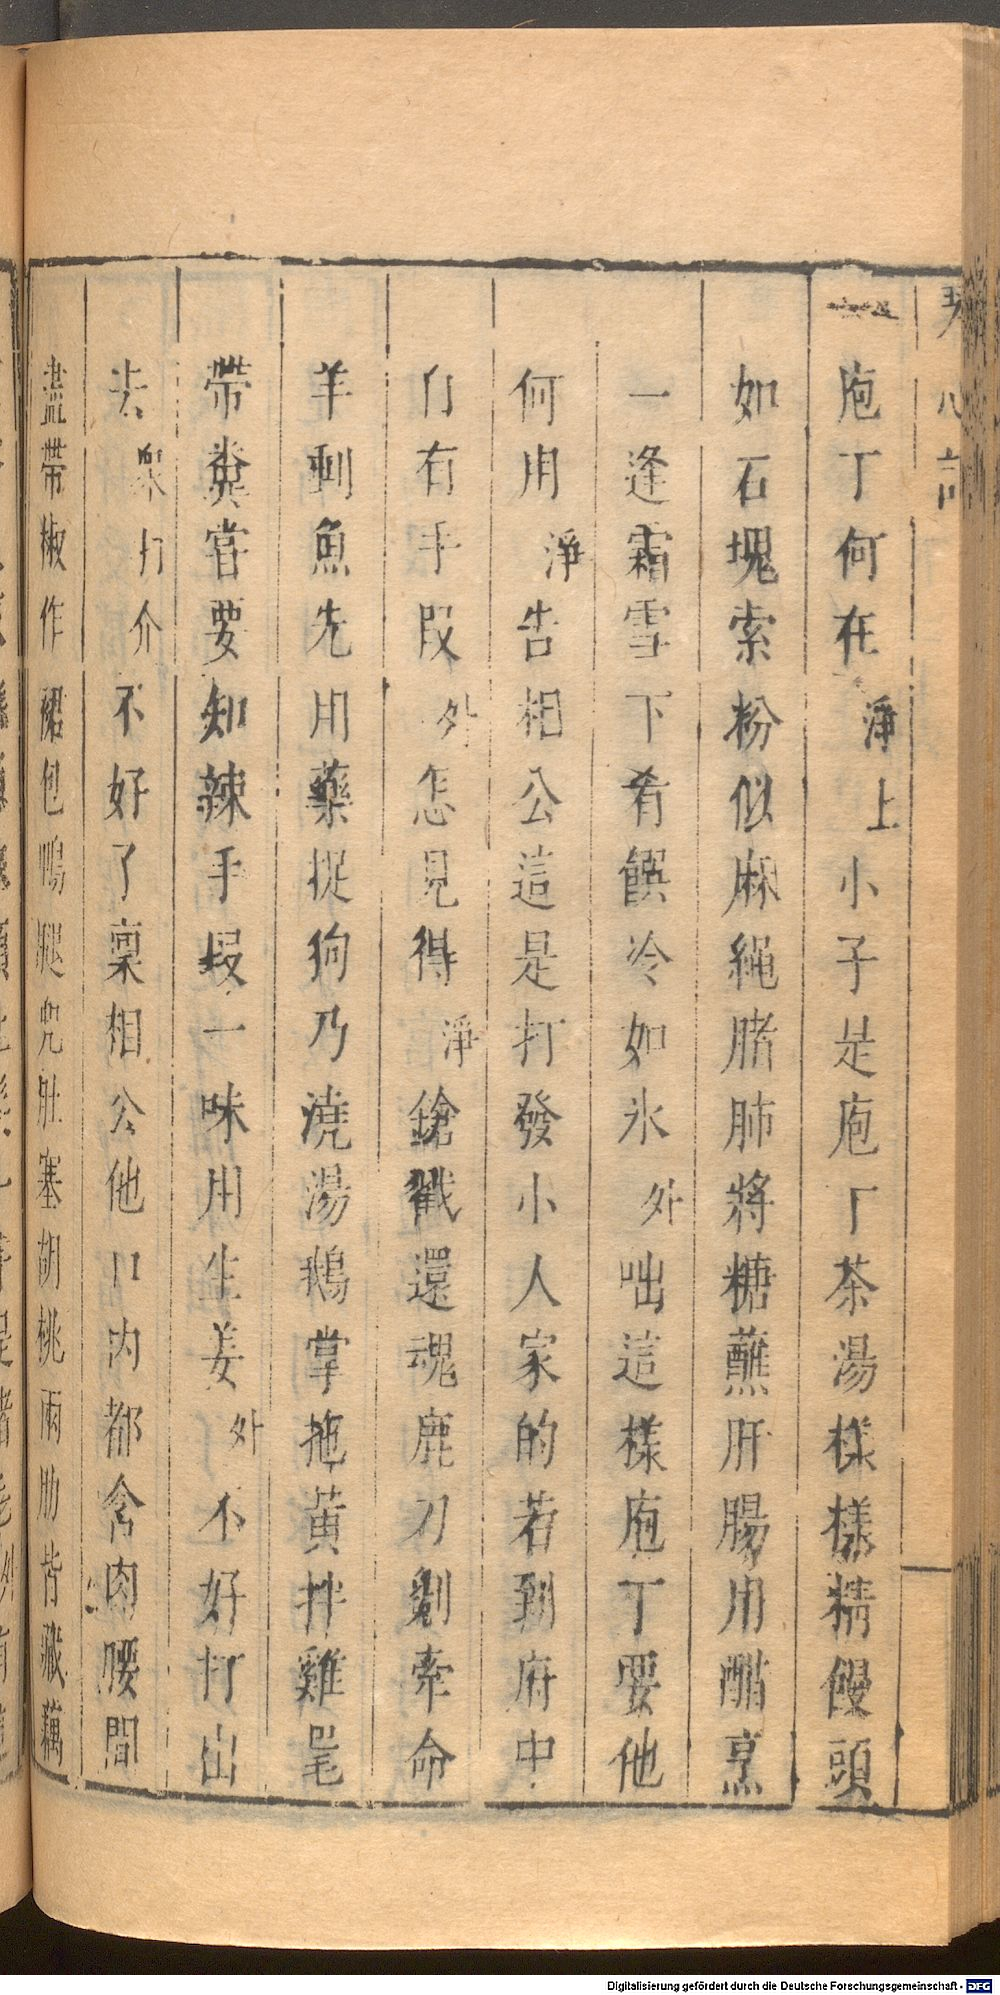 庖丁何在淨上小子是庖丁茶湯樣樣精饅頭
如石塊索粉似麻繩豬肺將糖蘸肝腸用醋烹
一逢霜雪下肴饌冷如氷外咄這樣庖丁要他
何用淨告相公這是打發小人家的若到府中
自有手段外怎見得淨鎗戳還魂鹿刀剝牽命
羊剌魚先用藥捉狗乃澆湯鵝掌拖黃拌雞尾
帶糞嘗要知辣手段一味用生姜外不好打出
去眾打介不好了稟相公他口內都含肉腰間
盡帶椒作裙包鴨腿兜肚塞胡桃兩肋皆藏藕
Digitalisierung gefördert durch die Deutsche Forschungsgemeinschaft - DFG